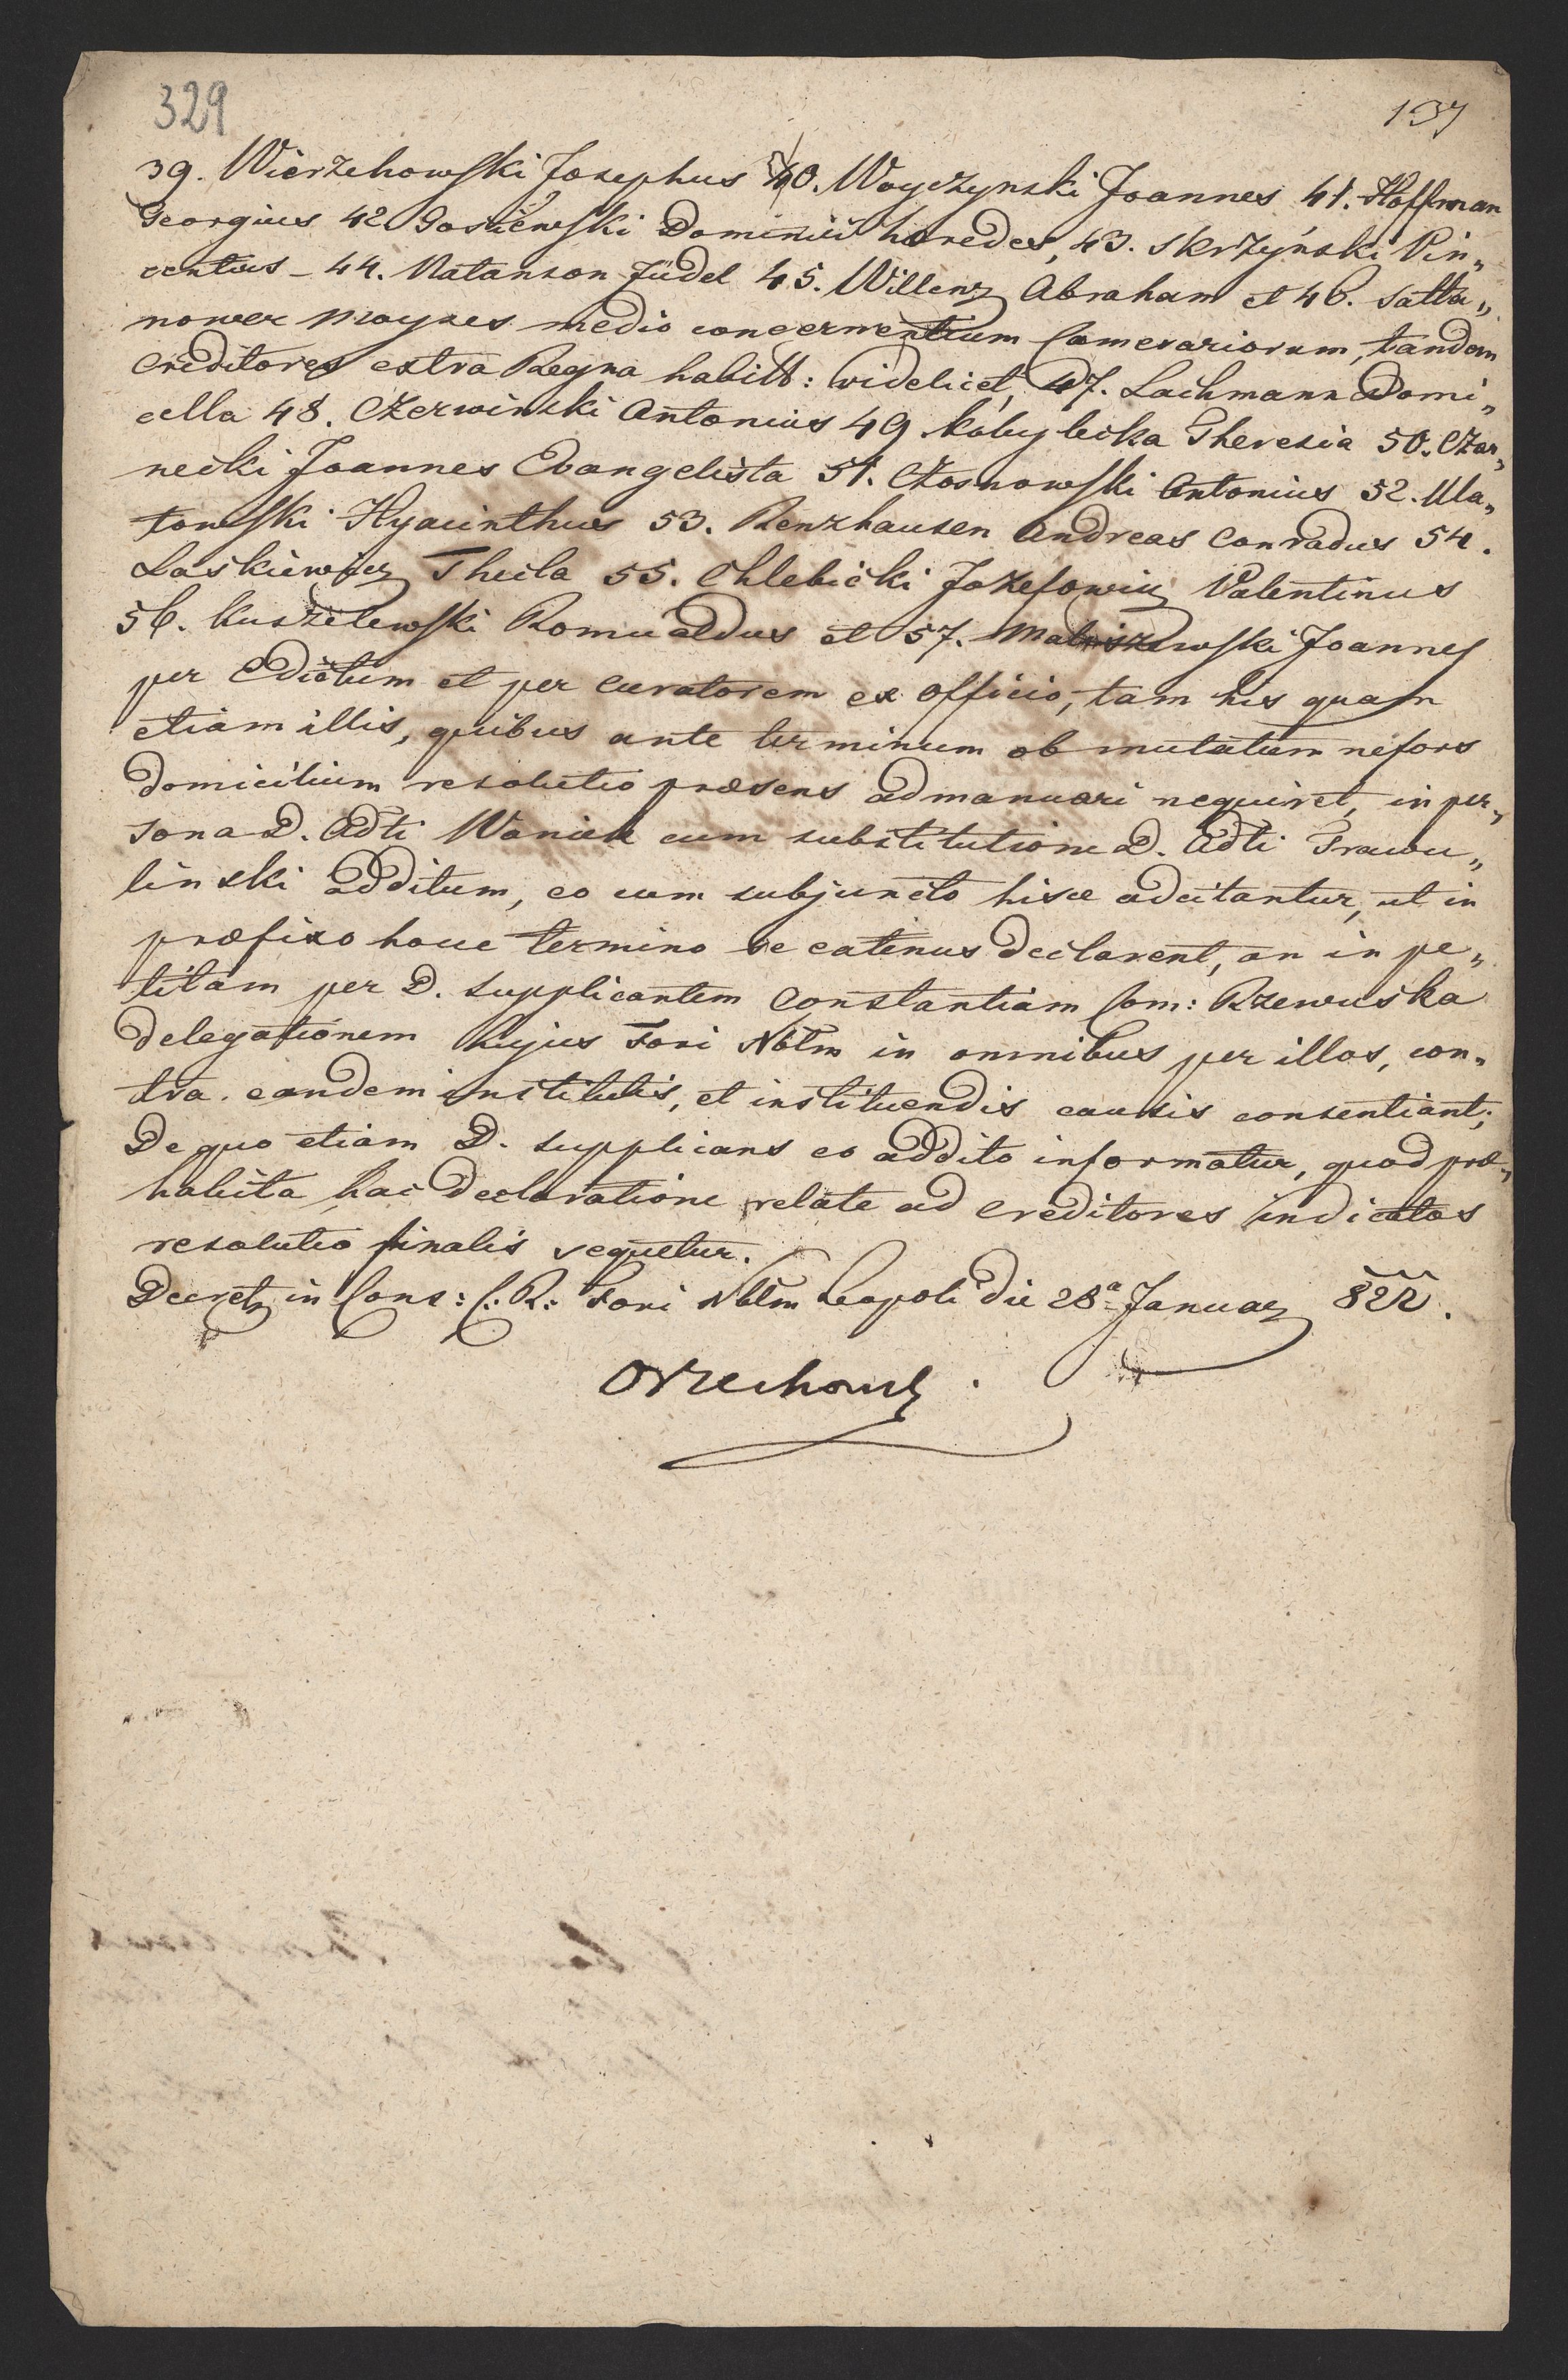 329
137
39. Wierzchowski Josephus 40. Woyczynski Joannes 41. Hoffman
Georgius 42 Gosiewski Dominici hæredes, 43. Skrzyński Vin„
centius – 44. Natanson Jüdel 45. Willenz Abraham et 46. Satta„
nower Moyses medio concernentium Camerariorum, tandem
Creditores extra Regna habitt: videlicet, 47. Lachmann Domi„
cella 48. Czerwinski Antonius 49 Kobylecka Theresia 50. Czar„
necki Joannes Evangelista 51. Czosnowski Antonius 52. Ula„
towski Hyacinthus 53. Renzhausen Andreas Conradus 54.
Laskiewicz Thecla 55. Chlebicki Jozefowicz Valentinus
56. Kuszelewski Romualdus et 57. Joannes
per Edictum et per Curatorem ex officio, tam his quam
etiam illis, quibus ante terminum ob mutatum nefors
Domicilium resolutio præsens admanuari nequiret, in per„
sona D. Adti Waniek cum substitutione D. Adti
linski additum, eo cum subjuncto hisce adcitantur, ut in
præfixo hocce termino se eatenus declarent, an in pe„
titam per D. Supplicantem Constantiam Com: Rzewuska
delegationem hujus Fori Nblm in omnibus per illos, con„
tra eandem institutis, et instituendis causis consentiant;
De quo etiam D. Supplicans eo addito informatur, quod præ„
habita hac Declaratione relate ad Creditores indicatos
resolutio finalis sequetur.
Decret in Cons: C: R: Fori Nblm Leopoli die 28a Januar 822.
Orzechows